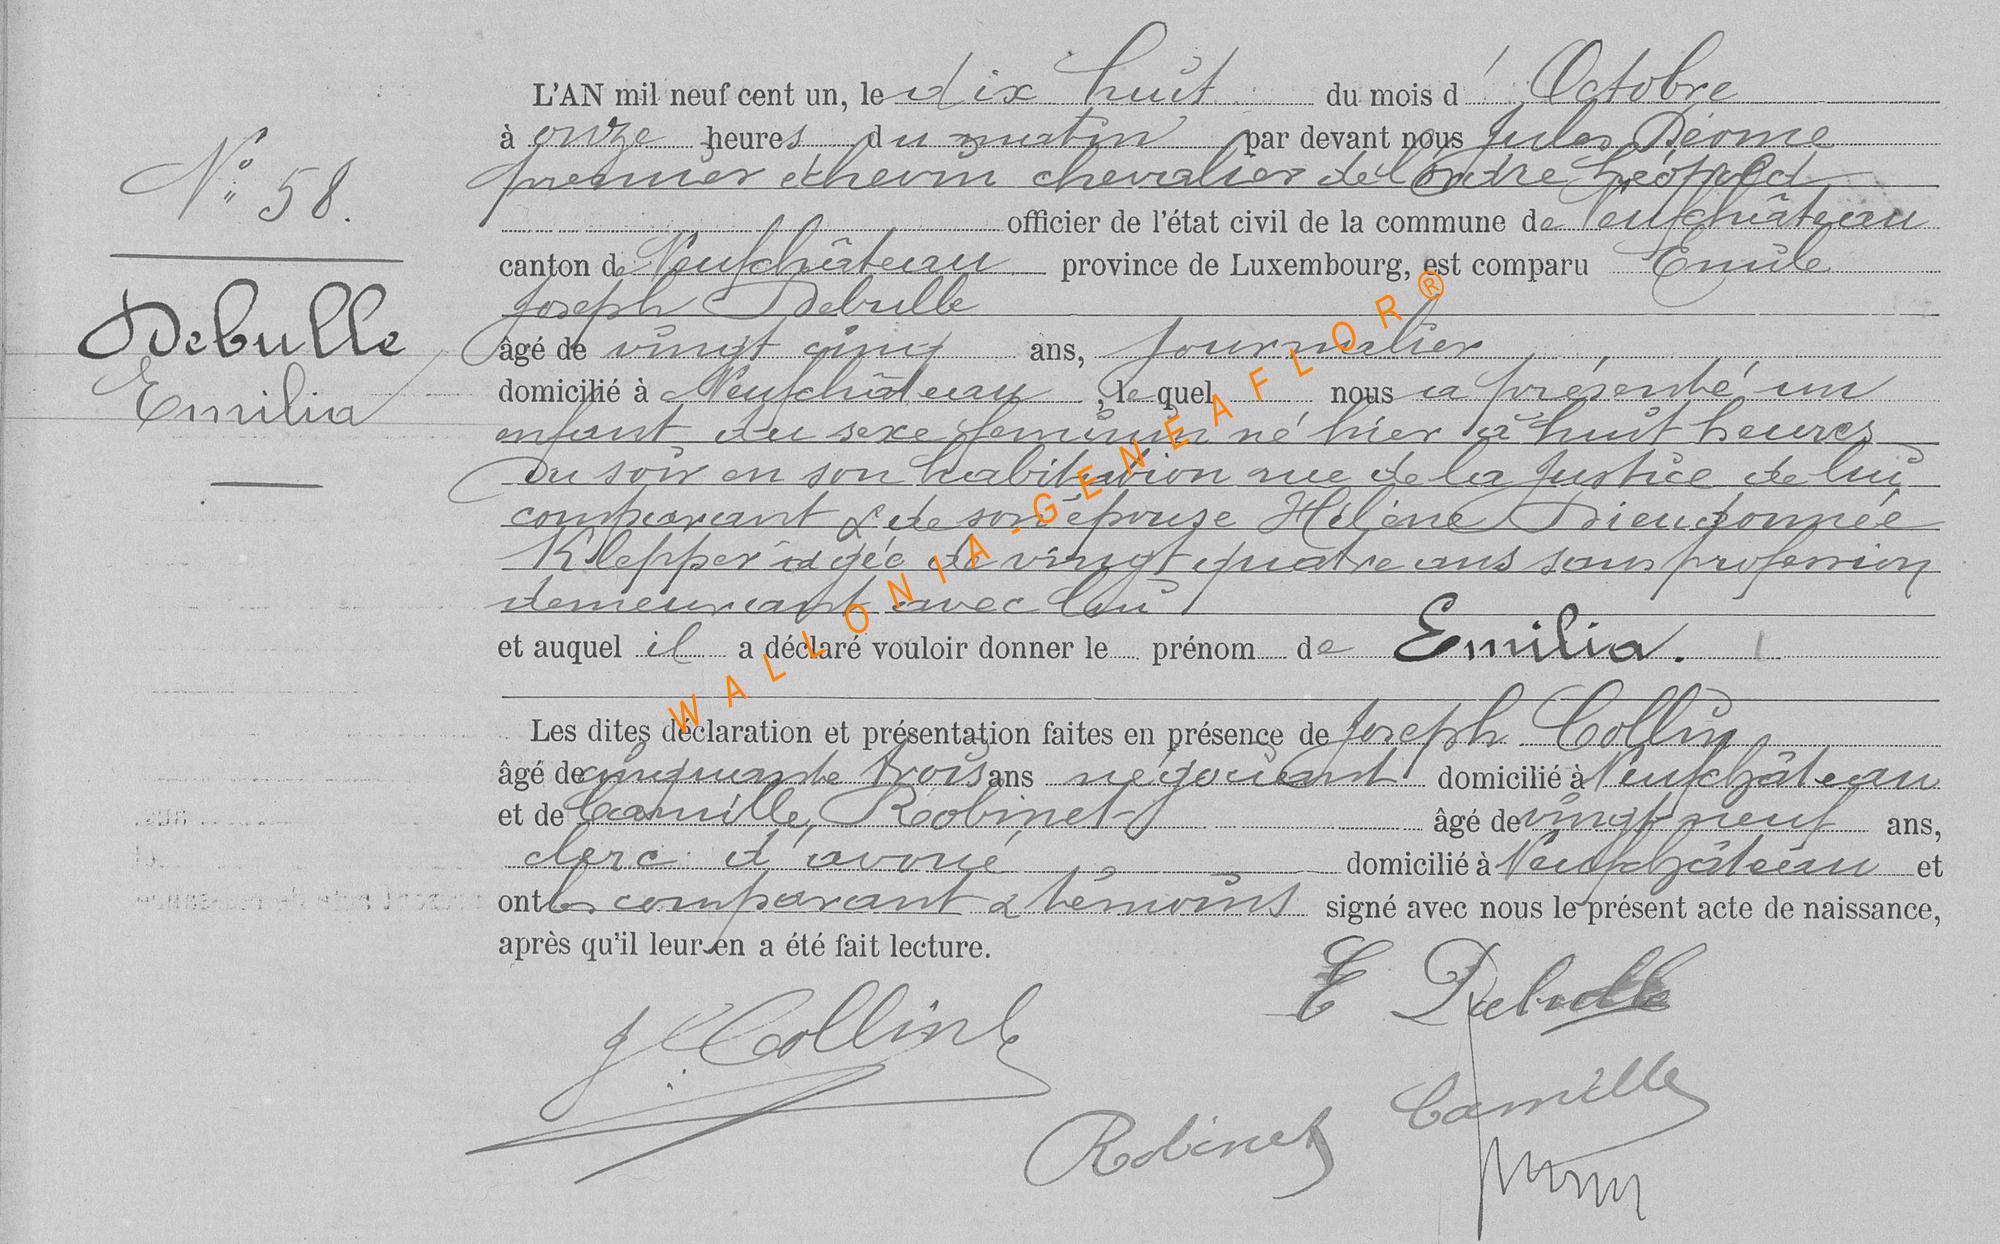 N° 58.
Debulle
Emilia
L'AN mil neuf cent un, le dix huit du mois d' Octobre
à onze heures du matin par devant nous Jules Déome
premier échevin chevalier de l'Ordre Léopold
officier de l'état civil de la commune de Neufchâteau
canton de Neufchâteau province de Luxembourg, est comparu Emile
Joseph Debulle
âgé de vingt cinq ans, Journalier
domicilié à Neufchâteau, le quel nous a présenté un
enfant du sexe féminin né hier à huit heures
Du soir en son habitation rue de la Justice de lui
comparant & de son épouse Hélène Dieudonnée
Klepper âgée de vingt quatre ans sans profession
demeurant avec lui
et auquel il a déclaré vouloir donner le prénom de Emilia.
Les dites déclaration et présentation faites en présence de Joseph Collin
âgé de cinquante trois ans négociant domicilié à Neufchâteau
et de Camille Robinet âgé de vingt neuf ans,
clerc d'avoué domicilié à Neufchâteau et
ont les comparant & témoins signé avec nous le présent acte de naissance,
après qu'il leur en a été fait lecture.
E Debulle
J Collin
Camille
Robinet
WALLONIA-GENEAFLOR®